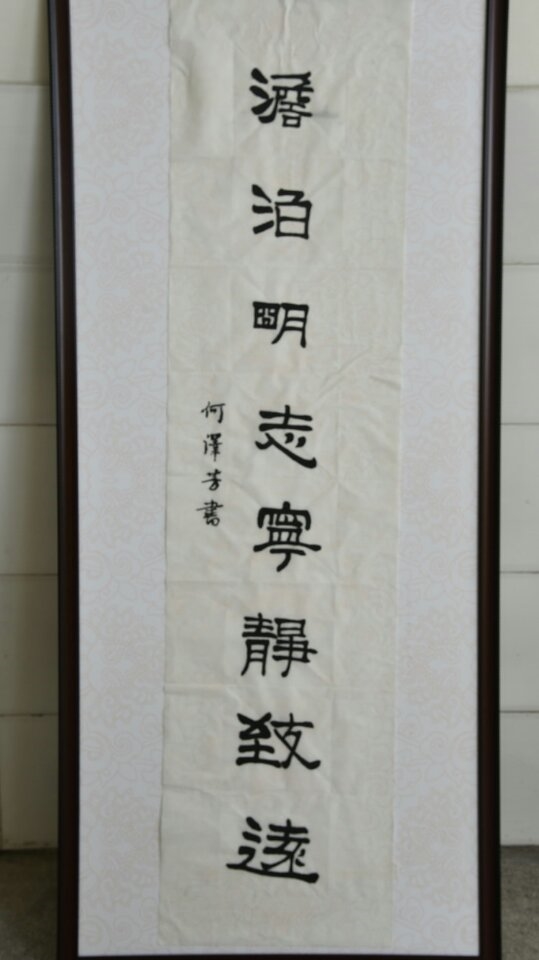 澹泊明志寧靜致遠
何澤芳書